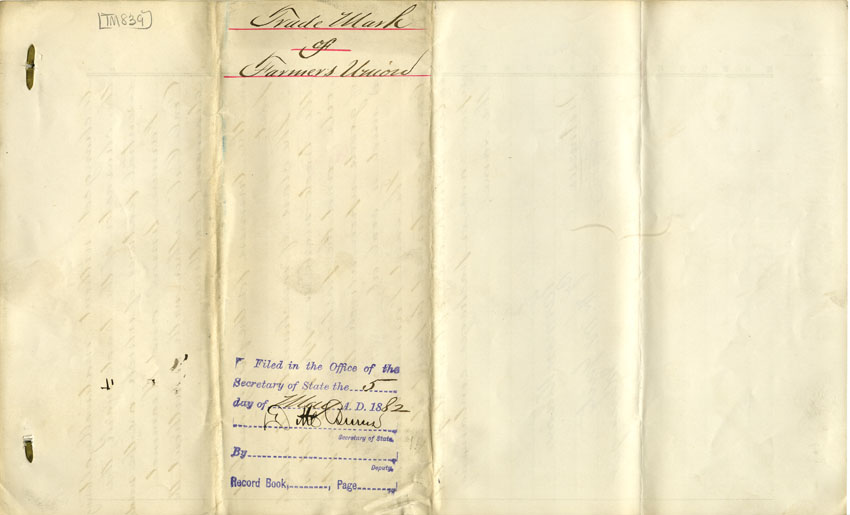 [TM839]
Trade Mark
of
Farmers Union
Filed in the Office of the
Secretary of State the 5
day of May A. D. 1882
D M Burns
Secretary of State.
By
Deputy.
Record Book, , Page